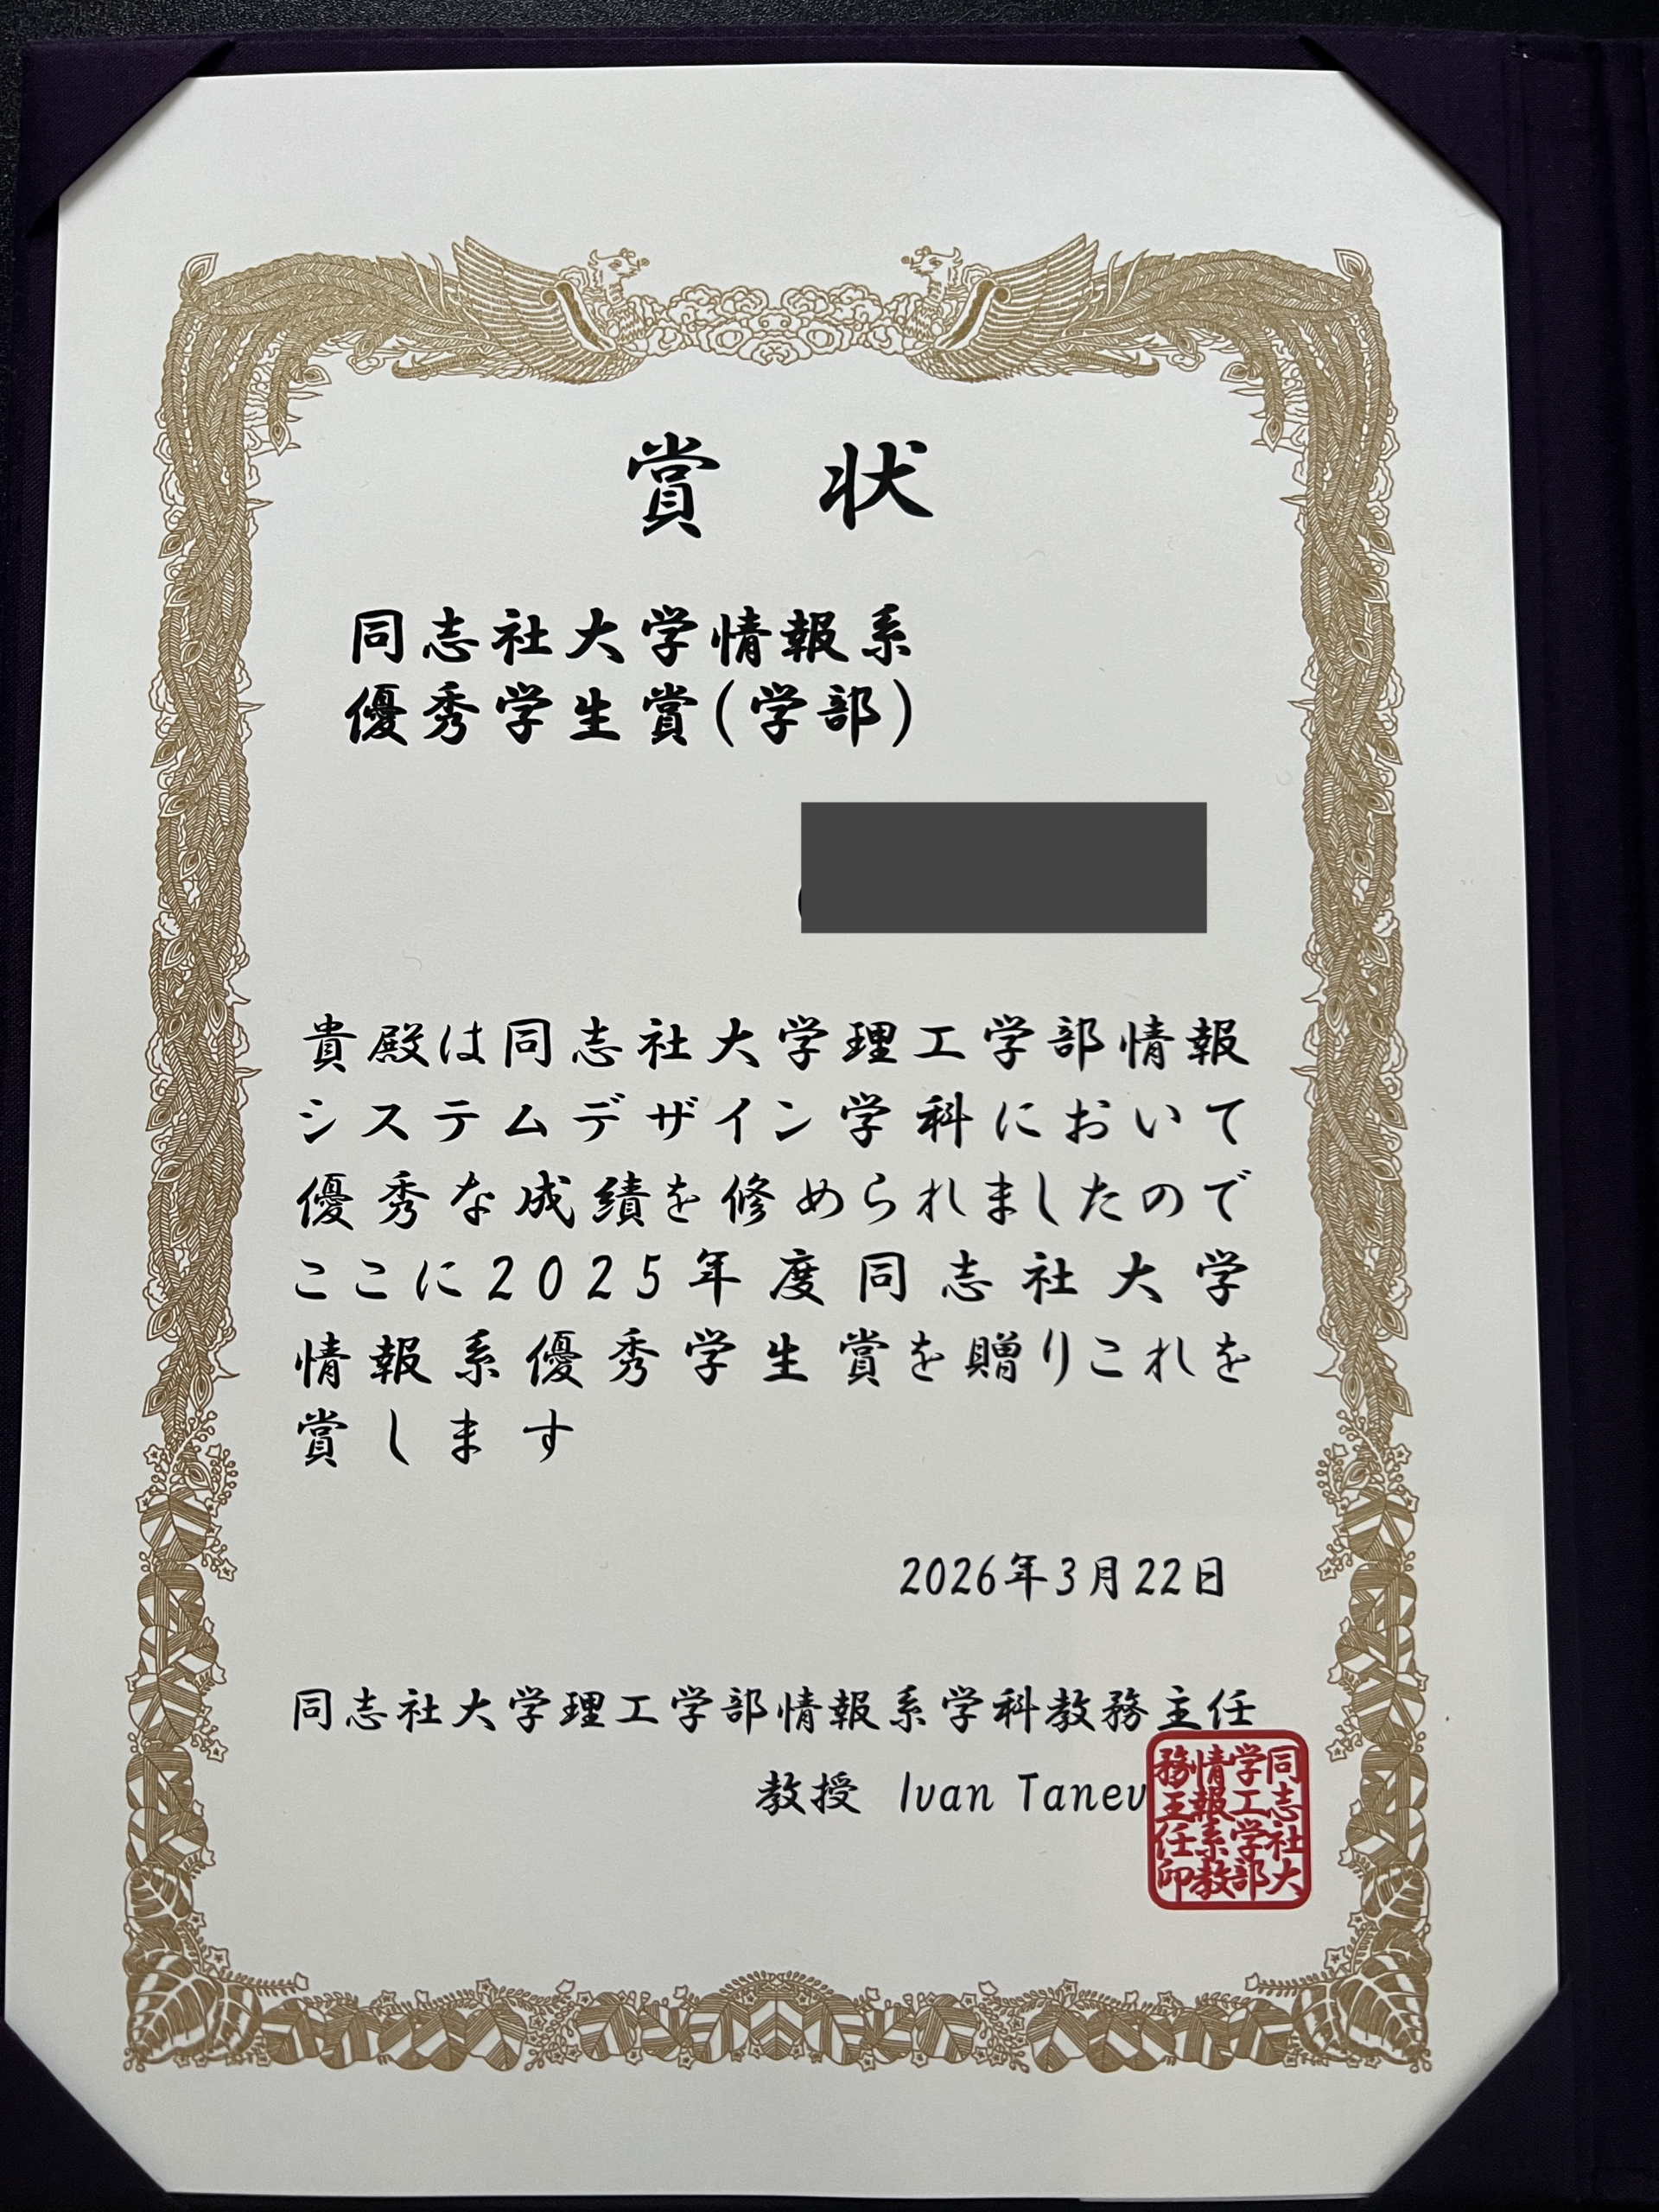 賞状
同志社大学情報系
優秀学生賞(学部)
貴殿は同志社大学理工学部情報
システムデザイン学科において
優秀な成績を修められましたので
ここに2025年度同志社大学
情報系優秀学生賞を贈りこれを
賞します
2026年3月22日
同志社大学理工学部情報系学科教務主任
教授 Ivan Tanev
同志社大
学工学部
情報系教
務主任印